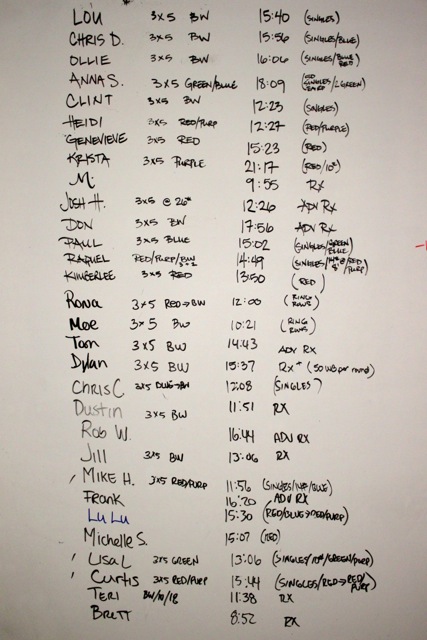 LOU 3x5 BW 15:40 (SINGLES)
CHRIS D. 3x5 BW 15:56 (SINGLES/BLUE)
OLLIE 3x5 BW 16:06 (SINGLES/BLUE RED)
ANNA S. 3x5 GREEN/BLUE 18:09 (SINGLES /2 GREEN)
CLINT 3x5 BW 12:23 (SINGLES)
HEIDI 3x5 RED/PURP 12:27 (RED/PURPLE)
GENEVIEVE 3x5 RED 15:23 (RED)
KRYSTA 3x5 PURPLE 21:17 (RED/10#)
M: 9:55 RX
JOSH H. 3x5 @ 26" 12:26 ADV RX
DON 3x5 BW 17:56 ADV RX
PAUL 3x5 BLUE 15:02 (SINGLES/GREEN BLUE)
RAQUEL RED/PURP/BW 14:49 (SINGLES/14#@/RED/PURP)
KIMBERLEE 3x5 RED 13:50 (RED)
Rona 3x5 RED→BW 12:00 (RING ROWS)
Moe 3x5 BW 10:21 (RING ROWS)
Tom 3x5 BW 14:43 ADV RX
Dylan 3x5 BW 15:37 RX+ (50 WB per round)
Chris C 3x5 →BW 12:08 (SINGLES)
Dustin 3x5 BW 11:51 RX
Rob W. 16:44 ADV RX
Jill 3x5 BW 13:06 RX
MIKE H. 3x5 RED/PURP 11:56 (SINGLES/14#/BLUE)
Frank 16:20 ADV RX
Lu Lu 15:30 (RED/BLUE→RED/PURP)
Michelle S. 15:07 (RED)
Lisa L 3x5 GREEN 13:06 (SINGLES/10#/GREEN/PURP)
Curtis 3x5 RED/PURP 15:44 (SINGLES/RED→RED/PURP)
TERI BW/10/18 11:38 RX
Brett 8:52 RX